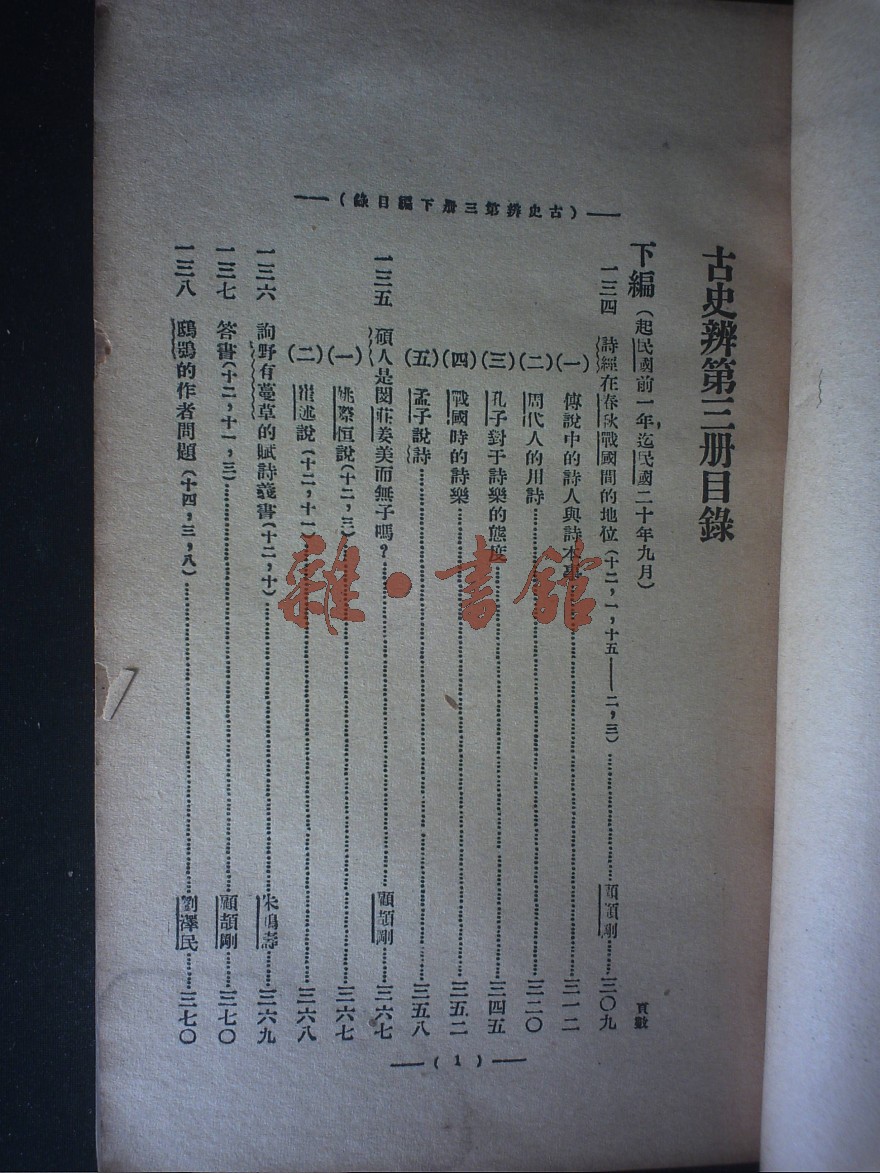 古史辨第三册目錄
（古史辨第三册下編目錄）
下編（起民國前一年，迄民國二十年九月）
頁數
一三四 詩經在春秋戰國間的地位（十二，一，十五——二，三）……顧頡剛……三〇九
（一）傳說中的詩人與詩本事……三一二
（二）周代人的用詩……三二〇
（三）孔子對于詩樂的態度……三四五
（四）戰國時的詩樂……三五二
（五）孟子說詩……三五八
一三五 碩人是閔莊姜美而無子嗎？……顧頡剛……三六七
（一）姚際恒說（十二，三）……三六七
（二）崔述說（十二，十一）……三六八
一三六 詢野有蔓草的賦詩義書（十二，十）……朱鴻壽……三六九
一三七 答書（十二，十一，三）……顧頡剛……三七〇
一三八 鴟鴞的作者問題（十四，三，八）……劉澤民……三七〇
（1）
雜·書館